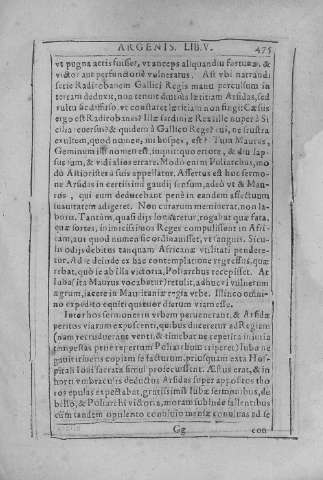 ARGENIS. LIB. V. 475
vt pugna acris fuisset, vt anceps aliquandiu fortunæ, &
victor aut perfunctoriè vulneratus. Ast vbi narrandi
serie Radirobanem Gallici Regis manu perculsum in
terram deduxit, non tenuit diuidua lætitiam Arsidas, sed
vultu ac diffuso, vt constaret lætitiam non fingi: Cæsus
ergo est Radirobanes? Ille Sardiniæ Rex ille nuper à Si
cilia reuersus? & quidem à Gallico Rege? cui, ne frustra
exultem, quod nomen, mi hospes, est? Tum Maurus,
Geminum illi nomen est, inquit: quo errore, & diu lap
sus sum, & vidi alios errare. Modò enim Poliarchus, mo
dò Astioristes à suis appellatur. Assertus est hoc sermo-
ne Arsidas in certissimi gaudij sensum, adeò vt & Mau-
ros, qui eum deducebant penè in eandem affectuum
suauitatem adigeret. Non curarum meminerat, non la-
boris. Tantùm, quasi dijs loqueretur, rogabat quæ fata,
quæ sortes, inimicissimos Reges compulissent in Afri-
cam, aut quod numen sic ordinauisset, vt sanguis Sicu-
lo odijs debitus tanquam Africanæ vtilitati pendere-
tur. Ad se deinde ex hac contemplatione regressus, quæ-
rebat, quò se ab illa victoria, Poliarchus recepisset. At
Iuba (ita Maurus vocabatur) retulit, adhuc vi vulnerum
ægrum, iacere in Mauritaniæ regia vrbe. Illinc octaua-
no expedito equiti quatuor dierum viam esse.
Inter hos sermones in vrbem peruenerant, & Arsidæ
peritos viarum exposcenti, quibus duceretur ad Regiem
(nam recruduerant venti, & timebat ne repetita iniuria
tempestas penè repertum Poliarchum raperet) Iuba ne
gauit itineris copiam se facturum, priusquam exta Hos-
pitali Ioui sacrata simul profecuissent. Æstus erat, & in
horti vmbraculis deductos Arsidas super appositos tho
ros epulas expectabat, gratissimis Iubæ sermonibus, de
bello, & Poliarchi victoria, moram subinde fallentibus
cùm tandem opulento conuiuio mensæ conuitas ad se
Gg con